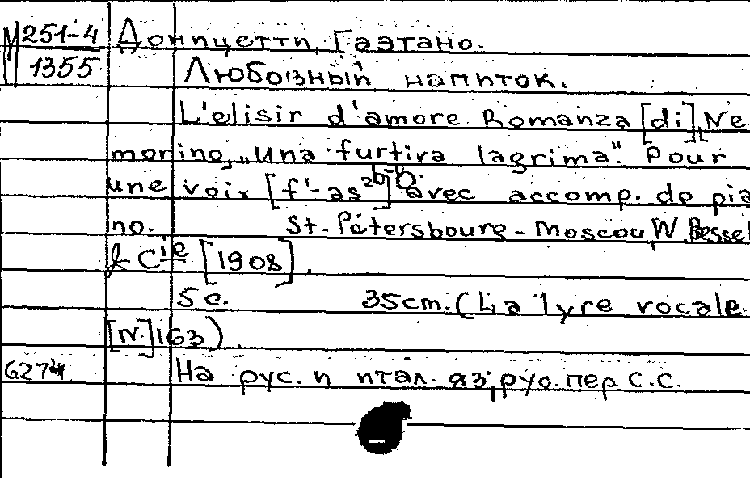 М 251-4 Доницетти, Гаэтано.
1355 Любовный напиток.
L'elisir d'amore. Romanza [di] Ne
morino „Una furtiva lagrima". Pour
une voix [f'-as²] avec accomp. de pia
no. St.-Pétersbourg - Moscou, W. Bessel
& Cie [1908].
5 c. 35 cm. (La lyre vocale.
[N.] 163).
На рус. и итал. яз; рус. пер. С.С.